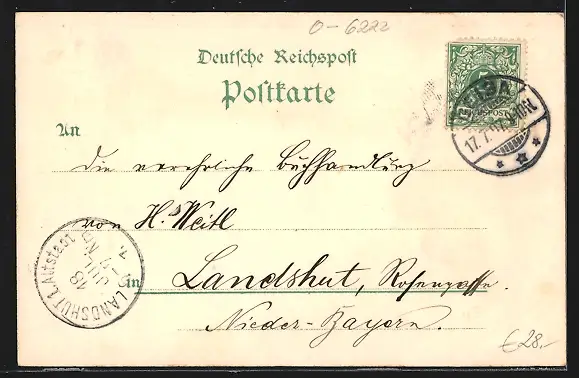 O-6222
Deutsche Reichspost
Postkarte
17.7.97.
An
die verehrliche Buchhandlung
von H. Weitl
LANDSHUT 1. Altstadt
18 JUL
in Landshut, Rosengasse.
Nieder-Bayern.
€28,-